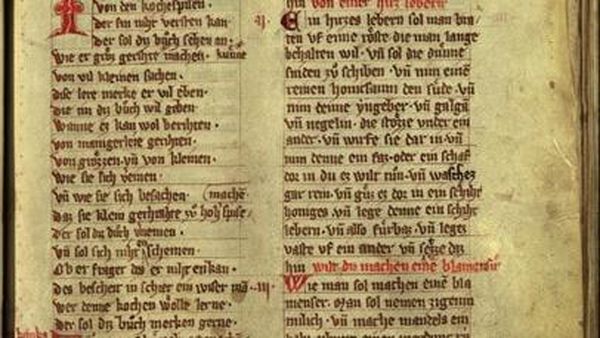 Von den kochespisen ·
Der sin niht versten kan ·
Der sol diz bůch sehen an ·
wie er grôz gerihte machen · kunne
von vil kleinen sachen ·
dise lere merke er vil eben ·
die im diz bůch wil geben ·
wanne ez kan wol berihten ·
von manigerleie gerihten ·
von grôzzen · vn̄ von kleinen ·
wie sie sich vereinen ·
vn̄ wie sie sich besachen · machē ·
daz sie klein gerihthe zů hoh' spise
der sol diz bůch vernemen ·
vn̄ sol sich niht enschemen ·
Ob er fraget des er niht enkan ·
des bescheit in schier ein wiser mā
wer denne kochen wolle lerne ·
der sol diz bůch merken gerne ·
hin von einer hirz lebern
ij · Ein hirzes lebern sol man bra
ten vf eime rôste die man lange
behalten wil · vn̄ sol die dünne
sniden zů schiben · vn̄ nim einē
reinen honicsaum den sůde · vn̄
nim denne yngeber · vn̄ galgā
vn̄ negelin · die stozze vnder ein
ander · vn̄ wirfe sie dar in · vn̄
nim denne ein faz · oder ein schaf
dor in du ez wilt tůn · vn̄ waschez
gar rein · vn̄ gůz ez dor in ein schiht
honiges · vn̄ lege denne ein schiht
lebern · vn̄ also fürbaz · vn̄ legez
vaste vf ein ander · vn̄ setze diz
hin wilt du machen eine
· iij · Wie man sol machen einē bla
menser · Man sol nemen zigenin
milich · vn̄ mache mandels ein